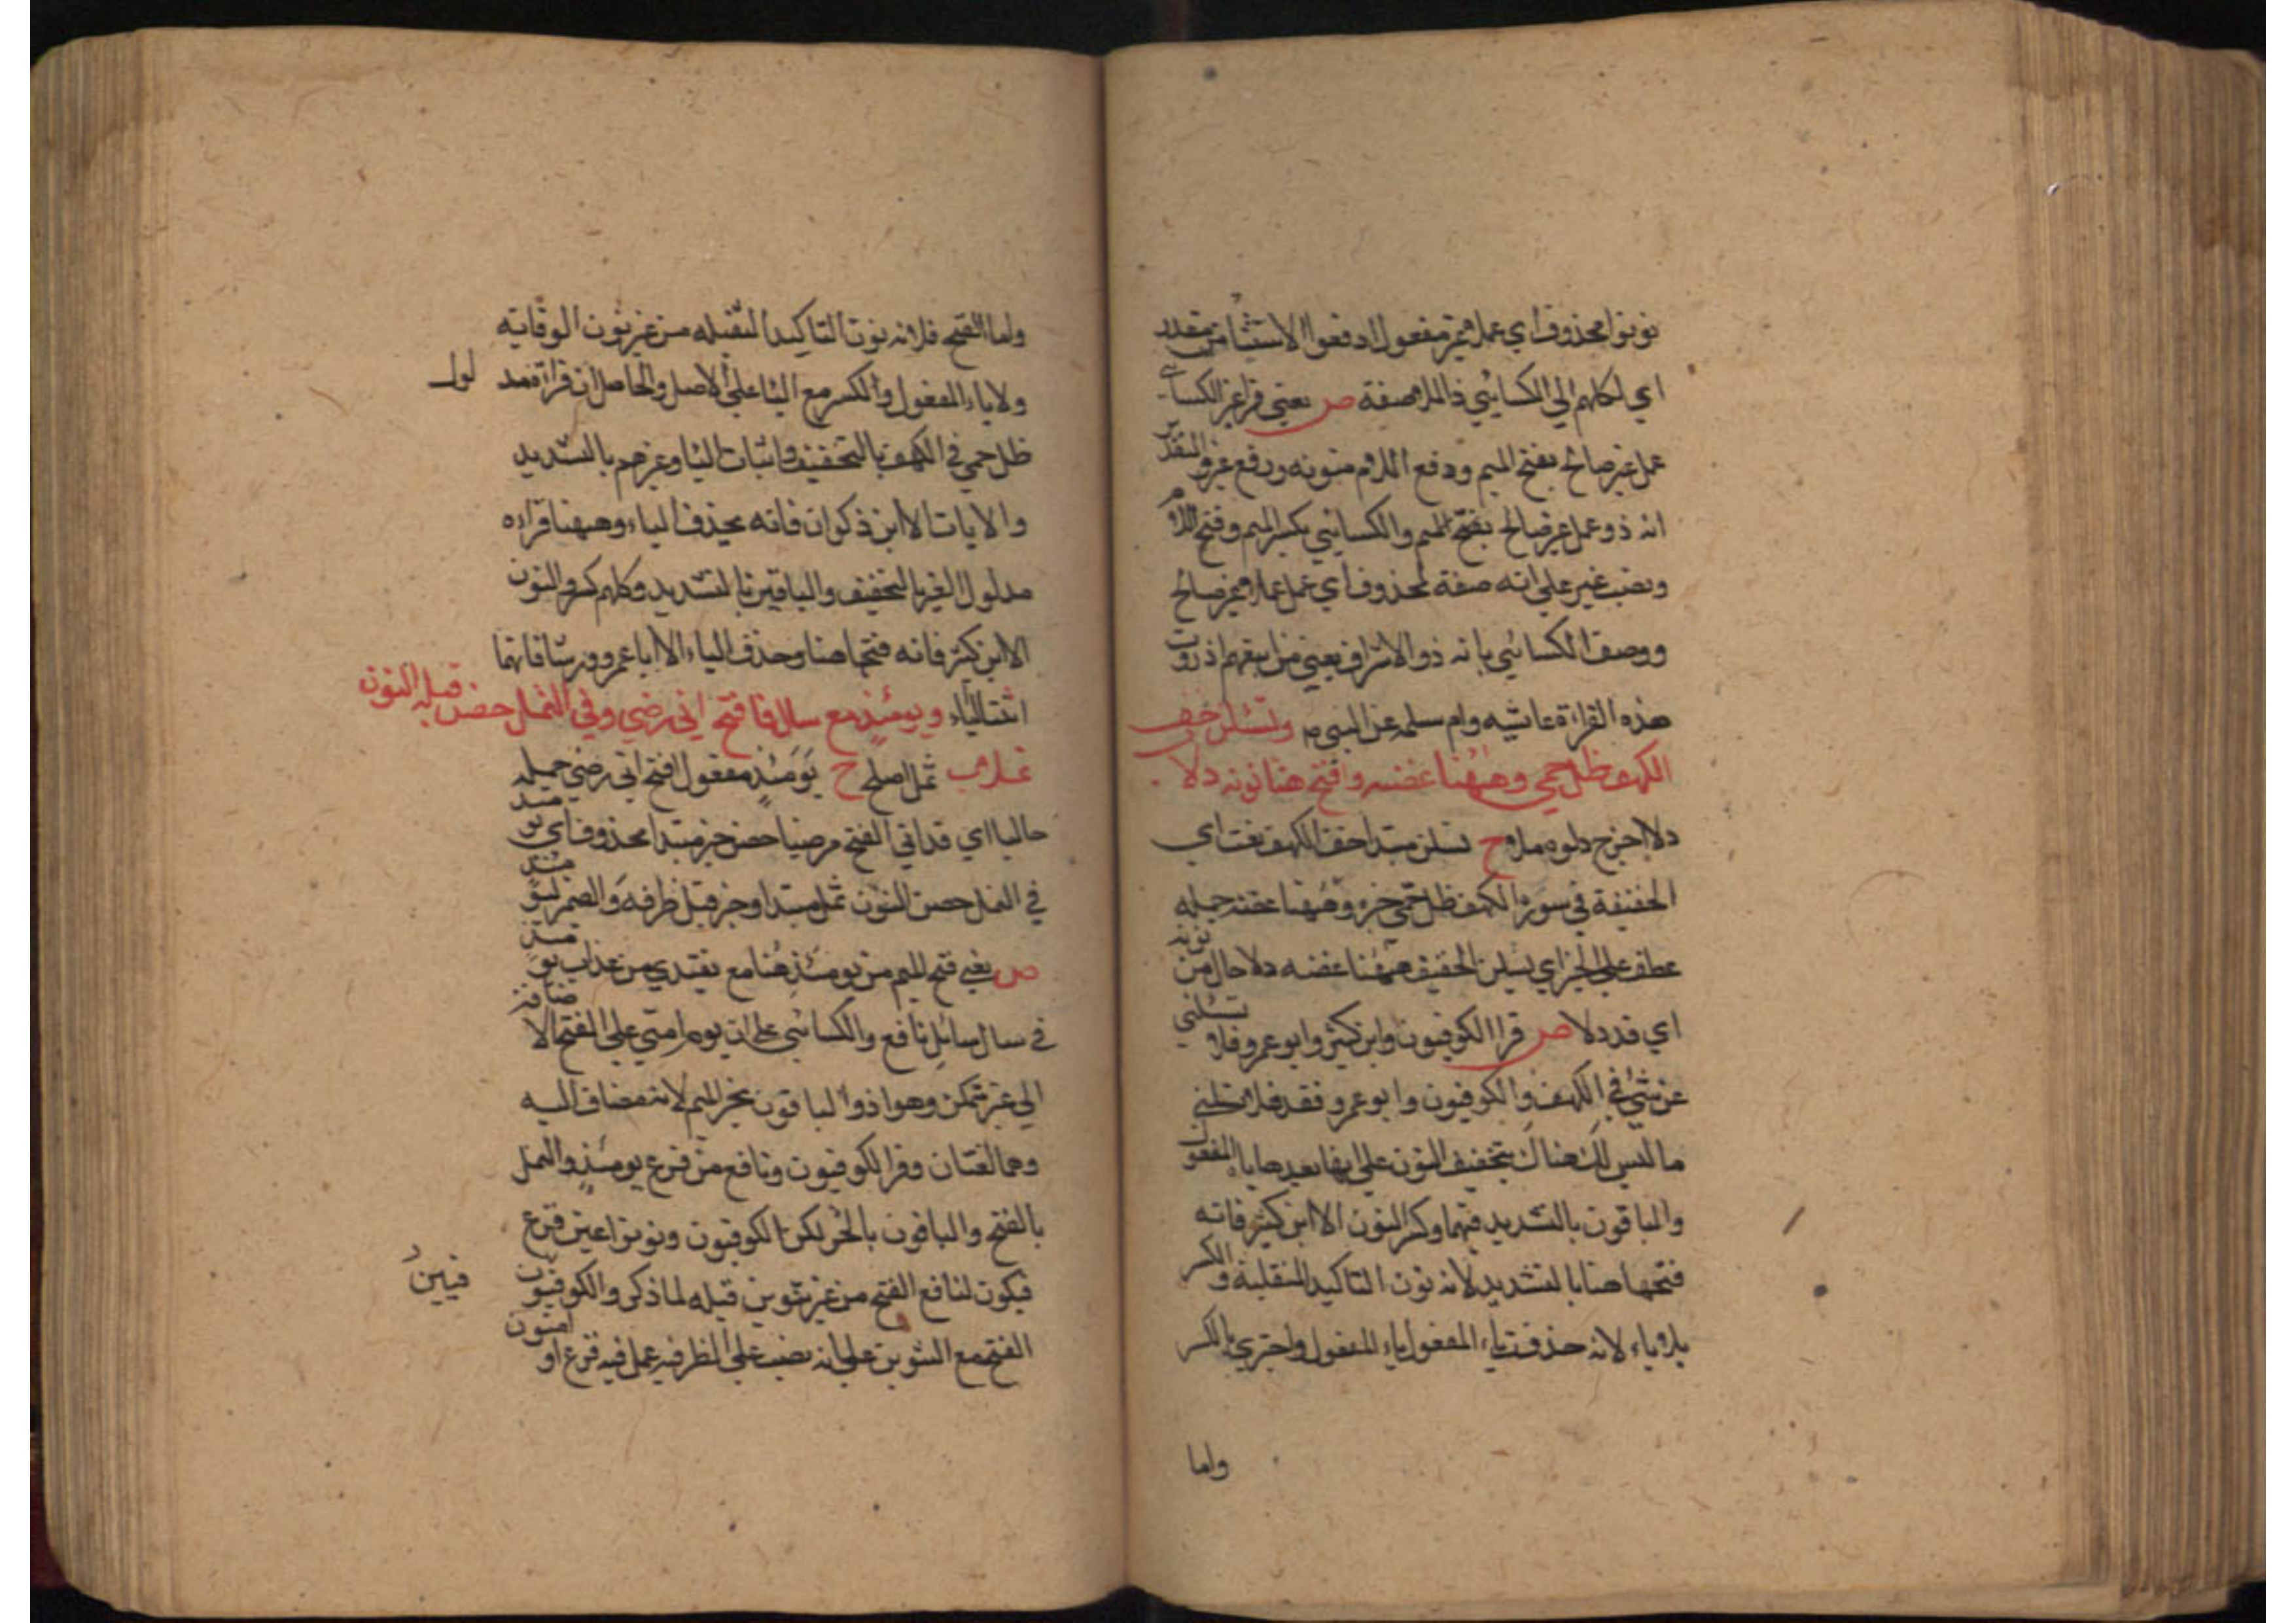 نونوا محذوف اي عملا غير مفعول ارفعوا الاستثنا من مقدر
اي لكلهم الي الكسائي ذا الملا صفة ص يعني قرا غير الكسائي
عمل غير صالح بفتح الميم ورفع اللام منونه ورفع غير والتقدير
انه ذو عمل غير صالح بفتح الميم والكسائي بكسر الميم وفتح اللام
ونصب غير علي انه صفة لمحذوف اي عمل عملا غير صالح
ووصف الكسائي بانه ذو الاشراف يعني من اتبعهم اذ روت
هذه القراءة عائشه وام سلمه عن النبي م وتسئلن خف
الكهف ظل حمي وههنا غصنه وافتح هنا نونه دلا
دلا اخرج دلوه ملا ح تسلن مبتدا خف الكهف نعت اي
الخفيفة في سورة الكهف ظل حمي خبره وههنا غصنه جمله
عطف علي الخبر اي تسلن الخفيف ههنا غصنه دلا حال من نونه
اي قد دلا ص قرا الكوفيون وابن كثير وابو عمرو فلا تسئلني
عن شئ في الكهف والكوفيون وابو عمرو فقد فلا تسئلني
ما ليس لك هناك بتخفيف النون علي انها بعدها ياء المفعول
والباقون بالتشديد فيهما وكسر النون الا ابن كثير فانه
فتحها هنا بالتشديد لانه نون التاكيد المثقلبة والكسر
بلا ياء لانه حذفت ياء المفعول ياء المفعول واجتزي بالكسر
واما
واما الفتح فلانه نون التاكيد الثقيله من غير نون الوقايه
ولا ياء المفعول والكسر مع اليا علي الاصل والحاصل ان قراءة مد لول
ظل حمي في الكهف بالتخفيف واثبات اليا وغيرهم بالتشديد
والايات الا ابن ذكوان فانه يحذف الياء وههنا قراءه
مدلول الغير بالتخفيف والباقين بالتشديد وكلهم كسر والنون
الا ابن كثير فانه فتحها هنا وحذف الياء الا ابا عمرو وورشا فانهما
اثبتا الياء ويومئذ مع سال فافتح اتي رضي وفي النمل حصن قبله النون
ثملا ب ثمل اصلح ح يومئذ مفعول افتح اتي رضي جمله
حاليا اي قد اتي الفتح مرضيا حصن خبر مبتدا محذوف اي يومئذ
في النمل حصن النون ثمل مبتدا وخبر قبل ظرفه والضمير ليومئذ
ص يعني فتح الميم من يومئذ هنا مع يفتدي من عذاب يومئذ
في سال سائل نافع والكسائي علي ان يوم امبني علي الفتح لاضافته
الي غير متمكن وهو اذ والباقون بجر الميم لانه مضاف اليه
وهما لغتان وقرا الكوفيون ونافع من فزع يومئذ والنمل
بالفتح والباقون بالجر لكن الكوفيون ونونوا عين فزع
فيكون لنافع الفتح من غير تنوين قبله لما ذكر والكوفيون فيين
الفتح مع التنوين علي انه نصب علي الظرفيه عمل فيه فزع او امنون